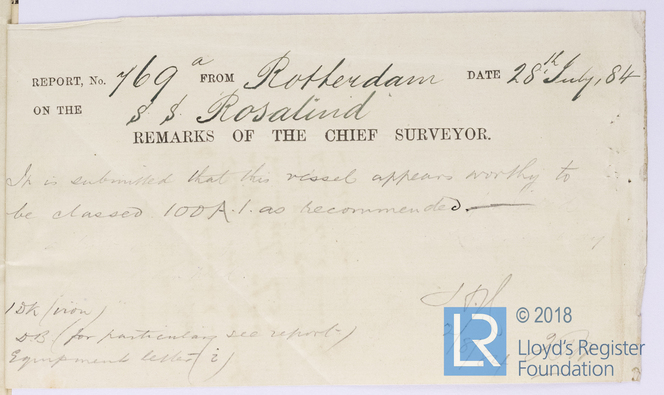 REPORT, No. 769a FROM Rotterdam DATE 28th July, 84
ON THE S S. Rosalind
REMARKS OF THE CHIEF SURVEYOR.
It is submitted that this vessel appears worthy to
be classed 100A.1. as recommended.
1 DK (iron)
DB (for particulars see report)
Equipment letter (i)
LR
© 2018
Lloyd's Register
Foundation